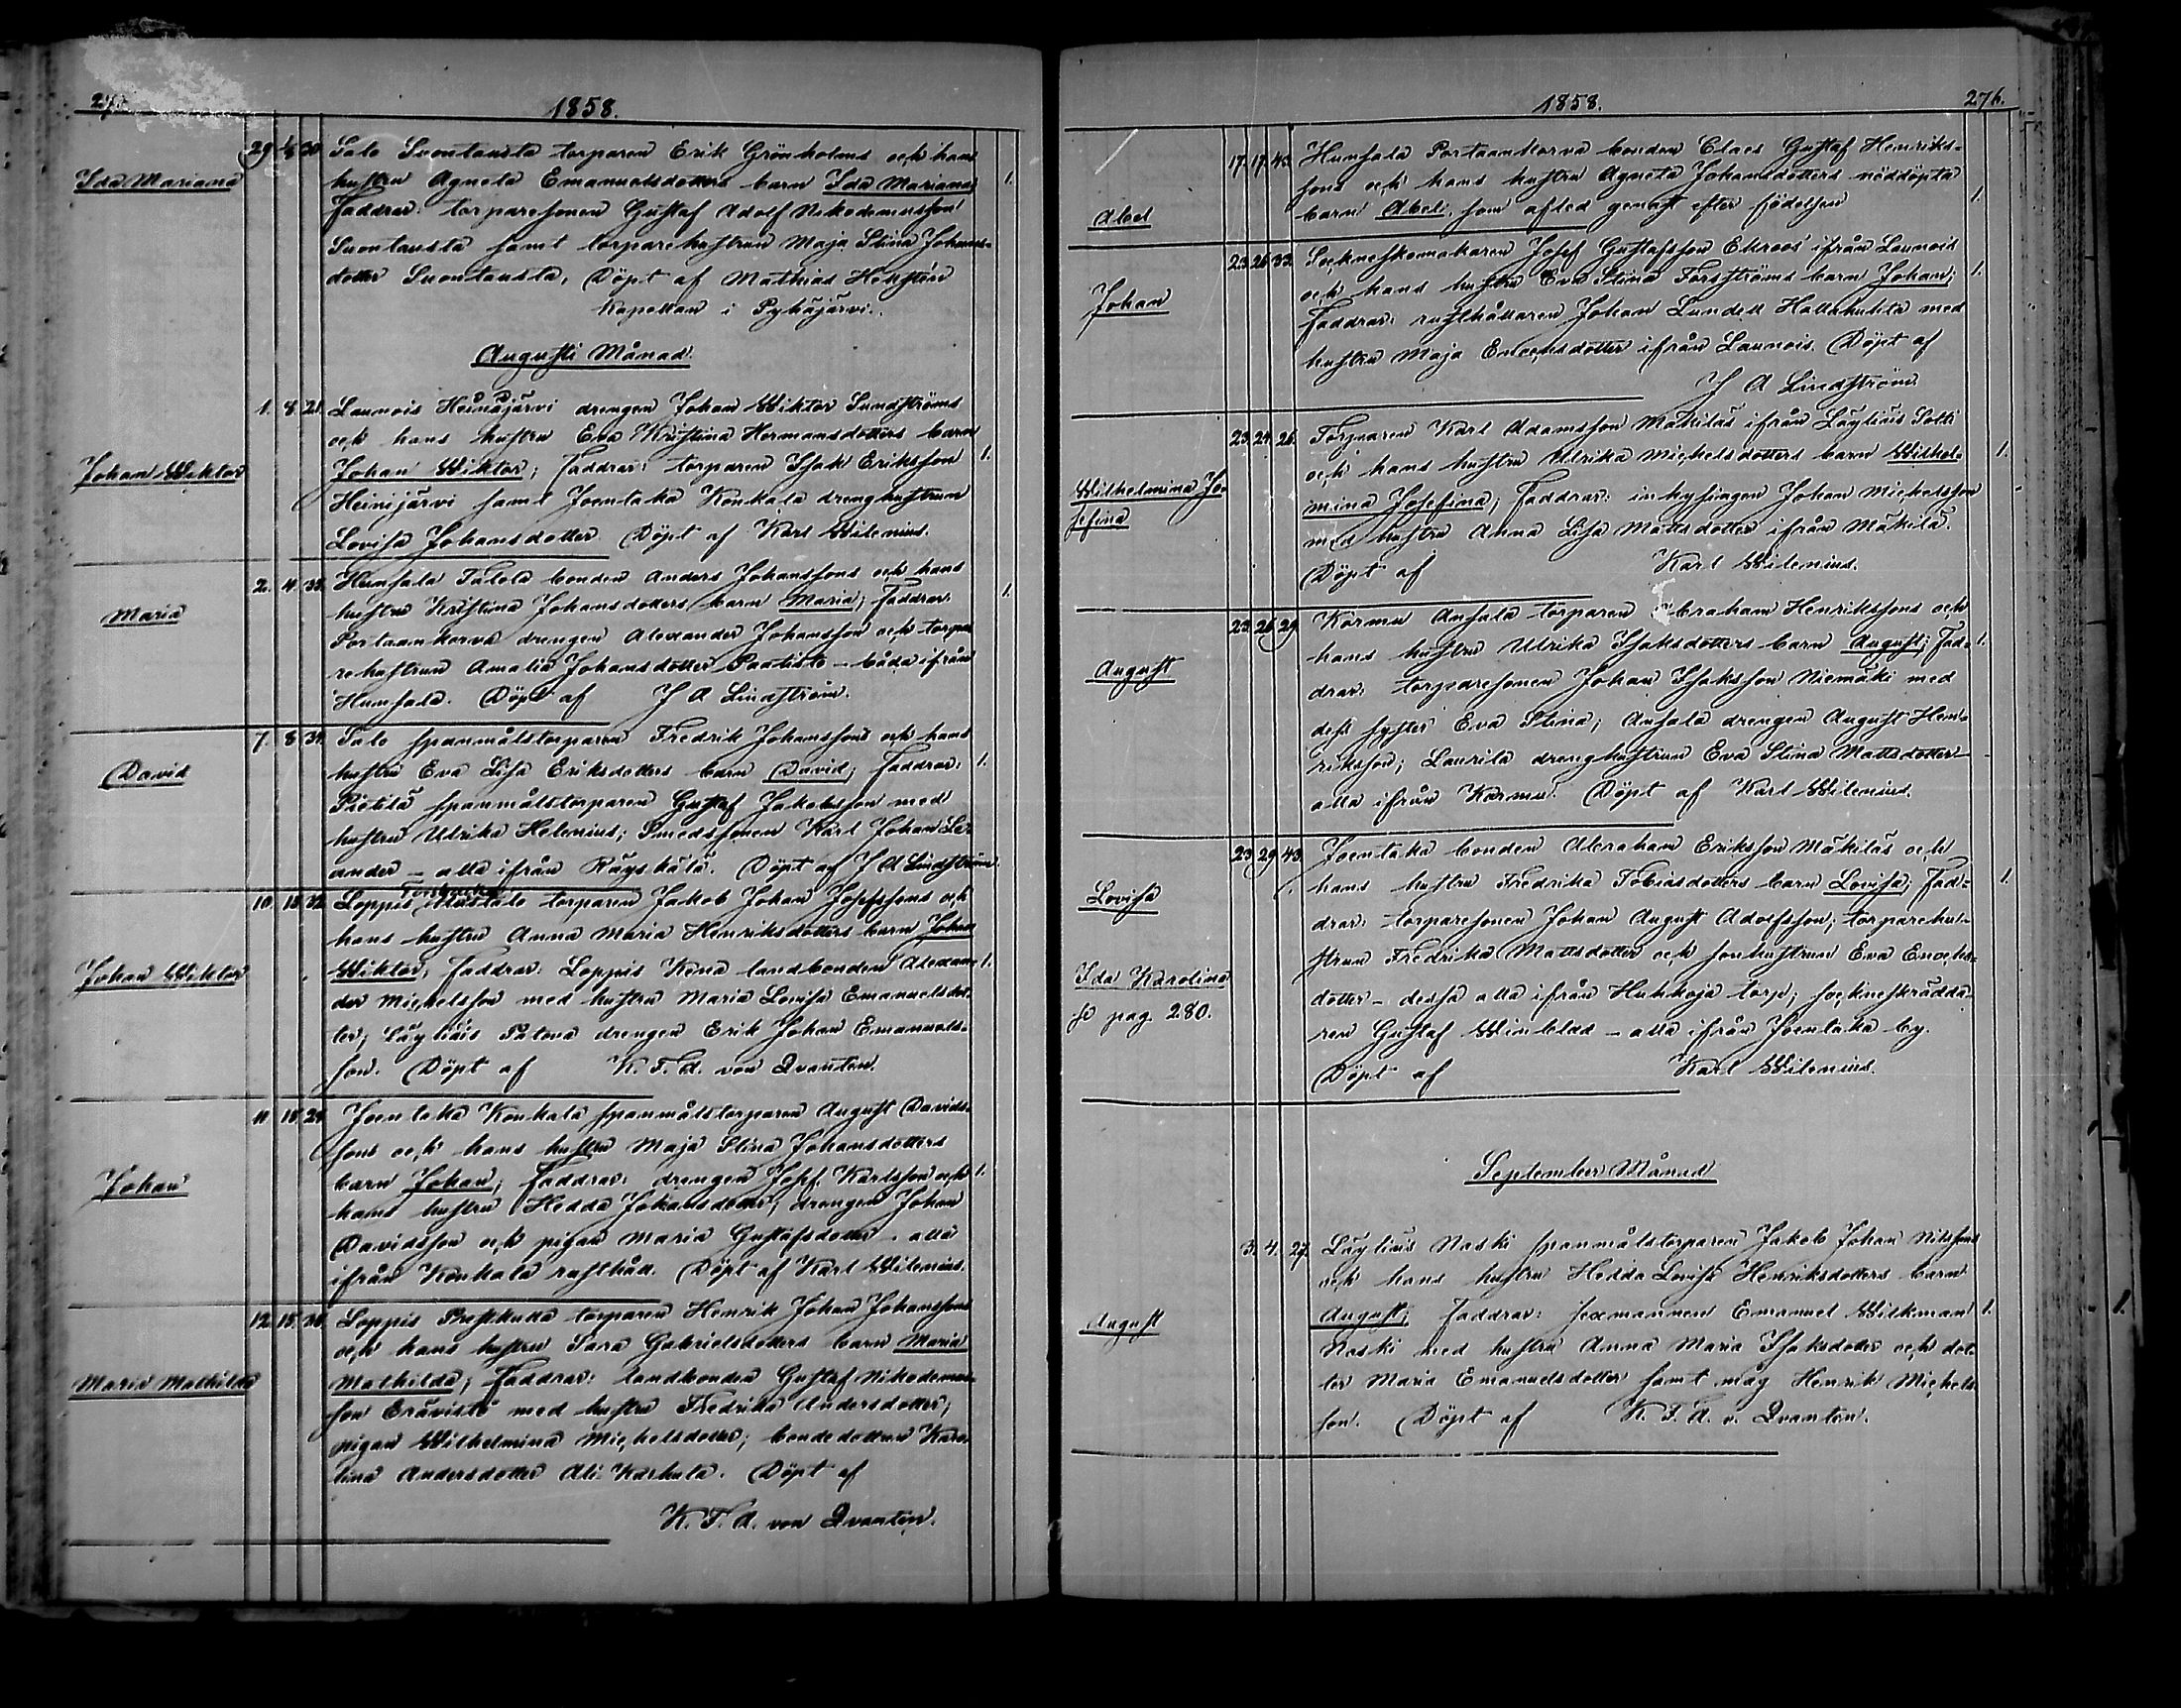 1858.
Ida Mariana
29 1/8 30. Salo Suontausta torparen Erik Grönholms och hans
hustru Agneta Emanuelsdotters barn Ida Mariana; 1.
Faddrar: torparesonen Gustaf Adolf Nikodemusson
Suontausta samt torparehustrun Maja Stina Johans-
dotter Suontausta, Döpt af Mathias
Kapellan i Pyhäjärvi.
Augusti Månad.
1. 8. 21. Launois Heinäjärvi drengen Johan Wiktor Sundströms
och hans hustru Eva Kristina Hermansdotters barn
Johan Wiktor
Johan Wiktor; Faddrar: torparen Isak Eriksson 1.
Heinijärvi samt Joentaka Konkala drenghustrun
Lovisa Johansdotter Döpt af Karl Wilenius.
Maria
2. 4. Humsala Talola bonden Anders Johanssons och hans
hustru Kristina Johansdotters barn Maria; Faddrar: 1.
Portaankorva drengen Alexander Johansson och torpa-
rehustrun Amalia Johansdotter Paatisto – båda ifrån
Humsala. Döpt af J A Lindström.
David
7. 8. Salo spanmålstorparen Fredrik Johanssons och hans
hustru Eva Lisa Eriksdotters barn David; Faddrar: 1.
Pietilä spanmålstorparen Gustaf Jakobsson med
hustru Ulrika Helenius; Smedssonen Karl Johan Le-
ander – alla ifrån Räyskälä. Döpt af J A Lindström.
Johan Wiktor
10. 15. 32. Loppis torparen Jakob Johan Josefssons och
hans hustru Anna Maria Henriksdotters barn Johan
Wiktor; Faddrar: Loppis Kena landbonden Alexan- 1.
der Michelsson med hustru Maria Lovisa Emanuelsdot-
ter; Läyliäis drengen Erik Johan Emanuels-
son. Döpt af K. F. A. von Qvanten.
Johan
11. 15. 24. Joentaka Konkala spanmålstorparen August Davids-
sons och hans hustru Maja Stina Johansdotters
barn Johan; Faddrar: drengen Josef Karlsson och 1.
hans hustru Hedda Johansdotter; drengen Johan
Davidsson och pigan Maria Gustafsdotter – alla
ifrån Konkala rusthåll. Döpt af Karl Wilenius.
Maria Mathilda
12. 15. Loppis torparen Henrik Johan Johanssons
och hans hustru Sara Gabrielsdotters barn Maria
Mathilda; Faddrar: landbonden Gustaf Nikodemus-
son Erävistö med hustru Fredrika Andersdotter;
pigan Wilhelmina Michelsdotter; bondedottren Karo-
lina Andersdotter Ali Karhula. Döpt af
K. F. A. von Qvanten.
1858. 276.
Abel
17. 17. 43. Humsala Portaankorva bonden Claes Gustaf Henriks-
sons och hans hustru Agneta Johansdotters nöddöpta
barn Abel, som afled genast efter födelsen 1.
Johan
23. 26. 33. Sockneskomakaren Josef Gustafsson Ekroos ifrån Launois
och hans hustru Eva Stina Forsströms barn Johan; 1.
Faddrar: rusthållaren Johan Lundell Hallahuhta med
hustru Maja Enochsdotter ifrån Launois. Döpt af
J A Lindström
Wilhelmina Jo-
sefina
23. 24. 26. Torparen Karl Adamsson Mäkiläs ifrån Läyliäis
och hans hustru Ulrika Michelsdotters barn Wilhel- 1.
mina Josefina; Faddrar: inhysingen Johan Michelsson
med hustru Anna Lisa Mattsdotter ifrån Mäkilä.
Döpt af Karl Wilenius.
August
23. 26. 29. Kormu Ansala torparen Abraham Henrikssons och
hans hustru Ulrika Isaksdotters barn August; Fad- 1.
drar: torparesonen Johan Isaksson Niemäki med
dess syster Eva Stina; Ansala drengen August Hen-
riksson; Laurila drenghustrun Eva Stina Mattsdotter –
alla ifrån Kormu. Döpt af Karl Wilenius.
Lovisa
23. 29. 43. Joentaka bonden Abraham Eriksson Mäkiläs och
hans hustru Fredrika Tobiasdotters barn Lovisa; Fad- 1.
drar: torparesonen Johan August Adolfsson; torparehu-
strun Fredrika Mattsdotter och sonhustrun Eva Enochs-
dotter – dessa alla ifrån Huhkoja torp; sockneskrädda-
ren Gustaf Winblad – alla ifrån Joentaka by.
Döpt af Karl Wilenius.
Ida Karolina
se pag. 280.
September Månad
August
3. 4. 27. Läyliäis Naski spanmålstorparen Jakob Johan Nilssons
och hans hustru Hedda Lovisa Henriksdotters barn
August; Faddrar: sexmannen Emanuel Wilkman 1.
Naski med hustru Anna Maria Isaksdotter och dot-
ter Maria Emanuelsdotter samt måg Henrik Michels-
son. Döpt af K. F. A. v. Qvanten.